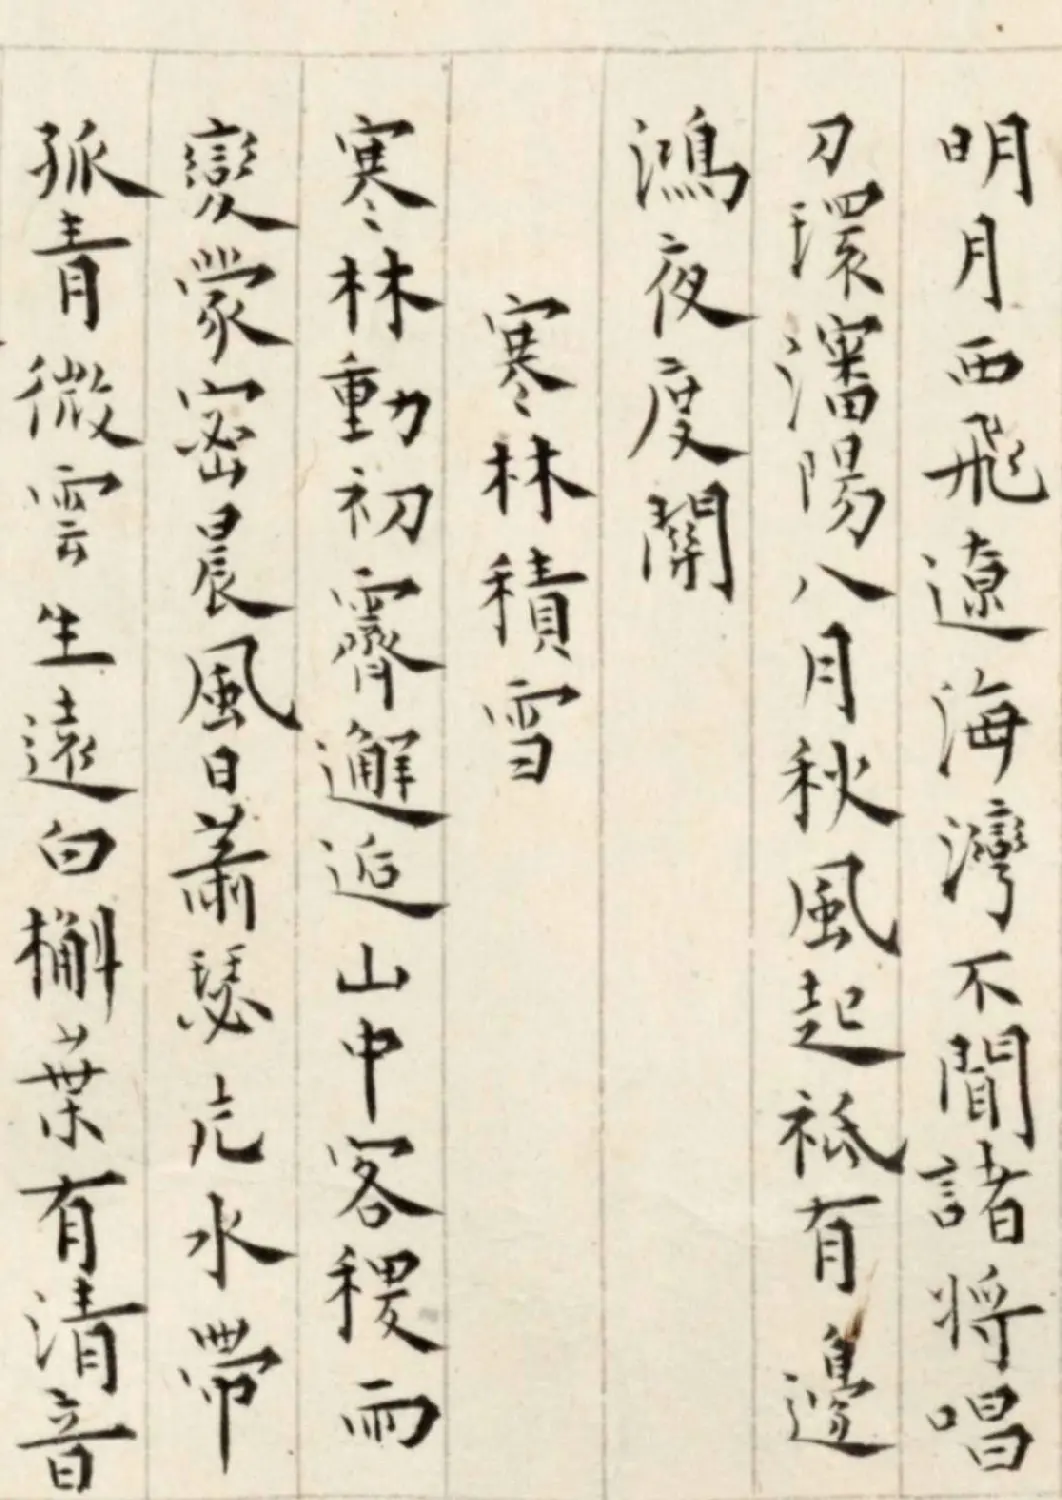 明月西飛遼海灣不聞諸將唱
刀環瀋陽八月秋風起祗有邊
鴻夜度關
寒林積雪
寒林動初霽邂逅山中客稷而
變蒙密晨風日蕭瑟水帶
孤青微雲生遠白槲葉有清音